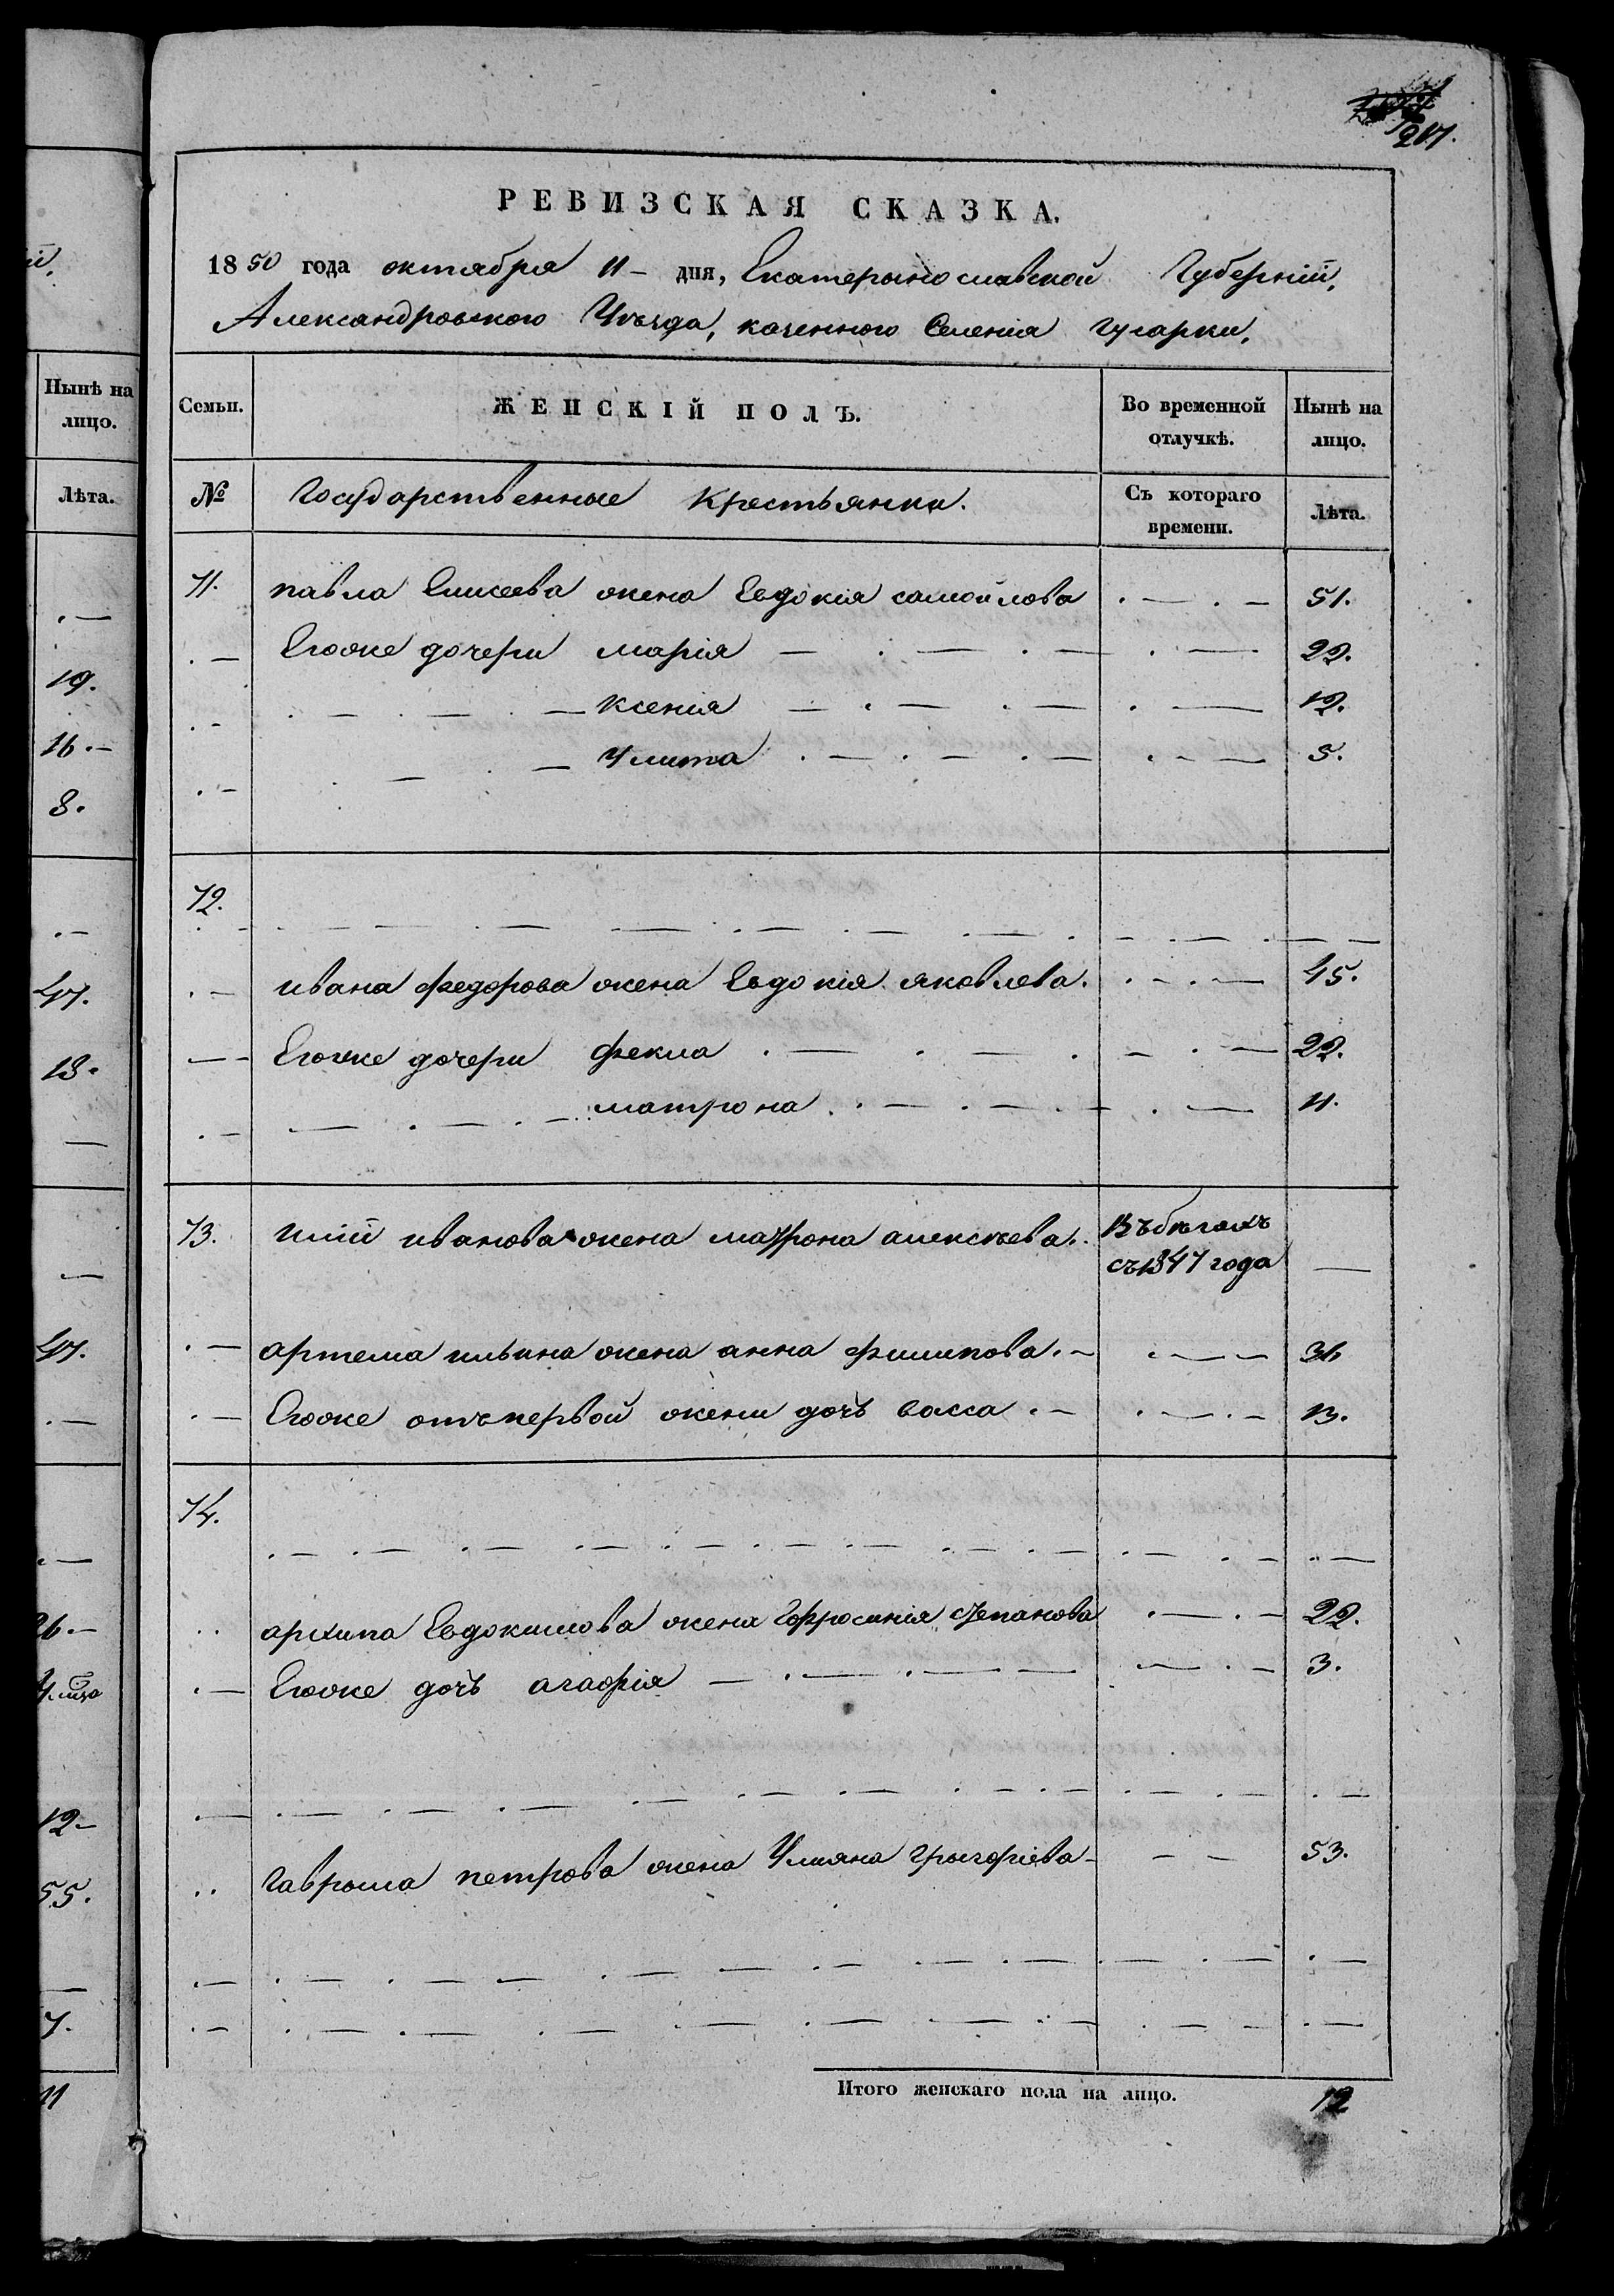 217.
РЕВИЗСКАЯ СКАЗКА.
1850 года октября 11 дня, Екатериносла́вской Губерніи,
Александровского Уѣзда, казенного Селенія Гусарки,
Семьи. ЖЕНСКІЙ ПОЛЪ. Во временной отлучкѣ. Нынѣ на лицо.
№ Государственные Крестьянки. Съ котораго времени. Лѣта.
71. павла Елисеева жена Евдокія самойлова 51.
Егоже дочери марія 22.
Ксенія 12.
Улита 5.
72.
ивана федорова жена Евдокія яковлева. 45.
Егоже дочери фекла 22.
матрона 11.
73. иліи иванова жена матрона алексѣева. Въ бѣгахъ
съ 1847 года —
артема ильина жена анна филипова. 36
Егоже отъ первой жени дочъ васса 13.
74.
архипа Евдокимова жена Ефросинія степанова 22.
Егоже дочъ агафія 3.
гаврыла петрова жена Улияна грыгоріева 53.
Итого женскаго пола на лицо. 12
Нынѣ на
лицо.
Лѣта.
19.
16.
8.
47.
13.
47.
26.
12
55.
7.
11